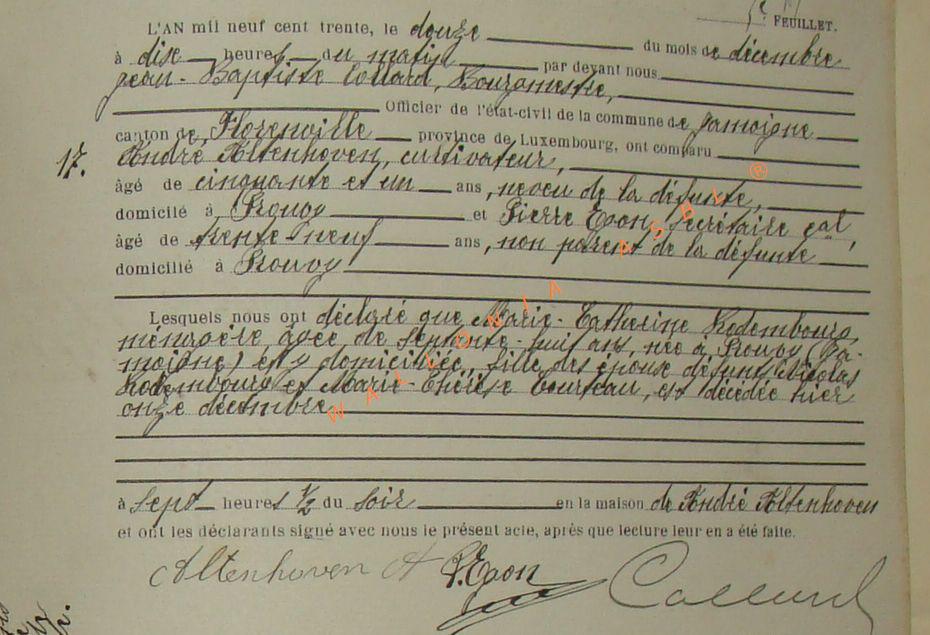 5e FEUILLET.
L'AN mil neuf cent trente, le douze du mois de décembre
à dise heures du matin par devant nous
Jean-Baptiste Collard, Bourgmestre,
Officier de l'état-civil de la commune de Jamoigne
canton de Florenville province de Luxembourg, ont comparu
17. André Altenhoven, cultivateur,
âgé de cinquante et un ans, neveu de la défunte,
domicilié à Prouvy et Pierre Evon, secrétaire cal,
âgé de trente-neuf ans, non parent de la défunte
domicilié à Prouvy
Lesquels nous ont déclaré que Marie-Catherine Rodembourg,
ménagère, âgée de septante-huit ans, née à Prouvy (Ja-
moigne) et y domiciliée, fille des époux défunts Nicolas
Rodembourg et Marie-Thérèse, est décédée hier
onze décembre
à sept heures 1/2 du soir en la maison de André Altenhoven
et ont les déclarants signé avec nous le présent acte, après que lecture leur en a été faite.
Altenhoven A P. Evon Collard
WALLONIA ASBL ®